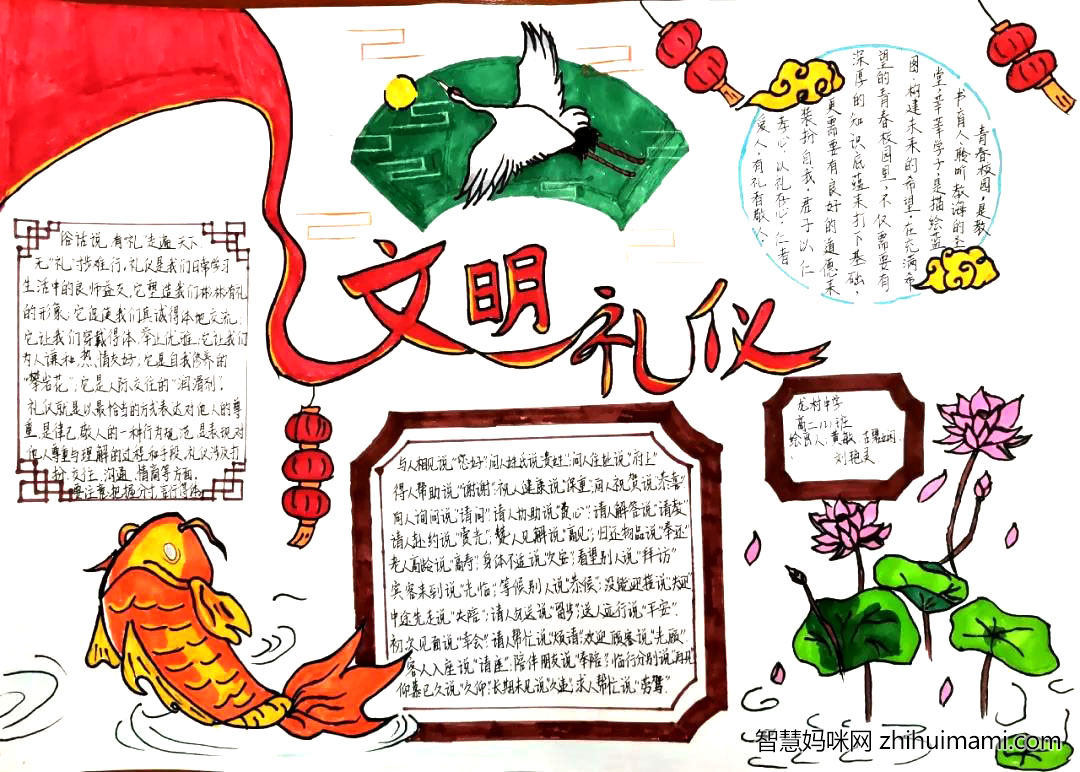 文明礼仪
俗话说,有“礼”走遍天下,
无“礼”寸步难行,礼仪是我们日常学习
生活中的良师益友,它塑造我们彬彬有礼
的形象;它促使我们真诚得体地交流;
它让我们穿戴得体,举止优雅;它让我们
为人谦和,热情友好;它是自我修养的
“攀岩花”;它是人际交往的“润滑剂”.
礼仪就是以最恰当的方式表达对他人的尊
重,是律己敬人的一种行为规范,是表现对
他人尊重与理解的过程和手段.礼仪涉及打
扮,交往,沟通,情商等方面,
要注意把握分寸,言行得体.
青春校园,是教
书育人、聆听教海的圣
堂,莘莘学子,是描绘蓝
图,构建未来的希望,在充满希
望的青春校园里,不仅需要有
深厚的知识底蕴来打下基础,
更需要有良好的道德来
装扮自我,君子以仁
存心,以礼在心,仁者
爱人,有礼者敬人.
龙村中学
高二(1)班
绘画人:黄敏
刘艳灵
与人相见说“您好”;问人姓氏说“贵姓”;问人住址说“府上”
得人帮助说“谢谢”;祝人健康说“保重”;向人祝贺说“恭喜”
向人询问说“请问”;请人协助说“费心”;请人解答说“请教”
请人赴约说“赏光”;赞人见解说“高见”;归还物品说“奉还”
老人高龄说“高寿”;身体不适说“欠安”;看望别人说“拜访”
宾客来到说“光临”;等候别人说“恭候”;没能迎接说“失迎”
中途先走说“失陪”;请人勿送说“留步”;送人远行说“平安”
初次见面说“幸会”;请人帮忙说“烦请”;欢迎顾客说“光顾”
客人入座说“请座”;陪伴朋友说“奉陪”;临行分别说“再见”
仰慕已久说“久仰”;长期未见说“久违”;求人帮忙说“劳驾”
智慧妈咪网 zhihuimami.com